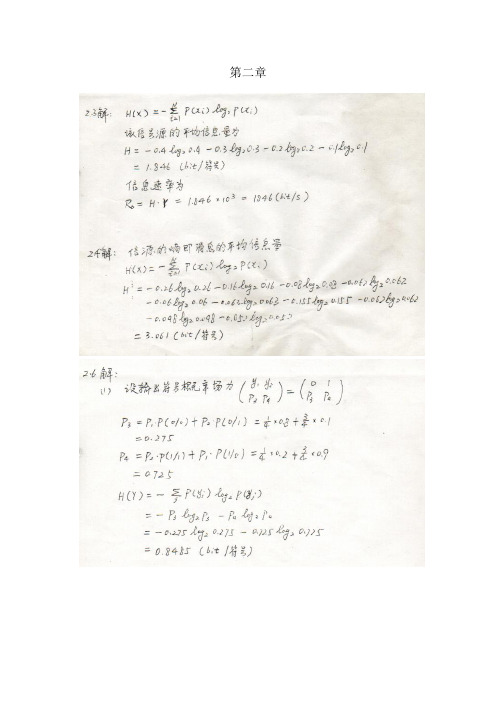 第二章
2.3解: H(X) = -∑_{i=1}^{N} P(xi) log₂ P(xi)
该信号源的平均信息量为
H = -0.4 log₂ 0.4 - 0.3 log₂ 0.3 - 0.2 log₂ 0.2 - 0.1 log₂ 0.1
= 1.846 (bit/符号)
信息速率为
R_b = H·r = 1.846 × 10³ = 1846 (bit/s)
2.4解: 信源的熵即消息的平均信息量
H(X) = -∑ P(xi) log₂ P(xi)
H = -0.26 log₂ 0.26 - 0.16 log₂ 0.16 - 0.08 log₂ 0.08 - 0.062 log₂ 0.062
-0.06 log₂ 0.06 - 0.063 log₂ 0.063 - 0.155 log₂ 0.155 - 0.062 log₂ 0.062
-0.048 log₂ 0.048 - 0.052 log₂ 0.052
= 3.061 (bit/符号)
2.6解:
(1) 设输出符号概率场为 (y₁ y₂ / P₃ P₄) = (0 1 / P₃ P₄)
P₃ = P₁·P(0/0) + P₂·P(0/1) = ¼ × 0.8 + ¾ × 0.1
= 0.275
P₄ = P₂·P(1/1) + P₁·P(1/0) = ¼ × 0.2 + ¾ × 0.9
= 0.725
H(Y) = -∑_{j} P(yj) log₂ P(yj)
= -P₃ log₂ P₃ - P₄ log₂ P₄
= -0.275 log₂ 0.275 - 0.725 log₂ 0.725
= 0.8485 (bit/符号)